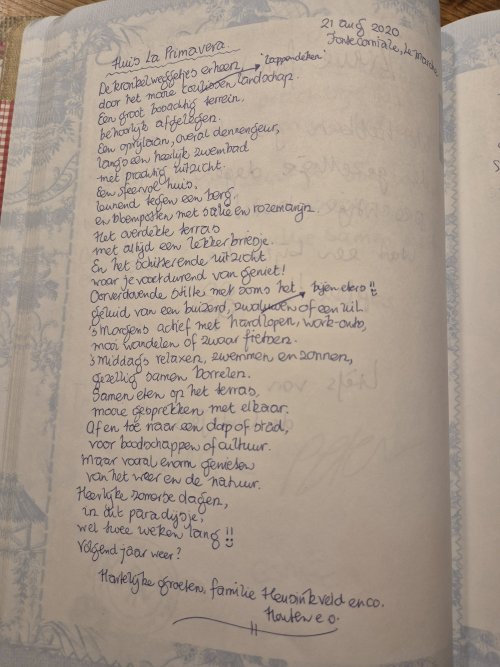 21 aug 2020
Fonte Corniale, Le Marche
Huis La Primavera
De kronkelweggetjes erheen, "lappendeken"
door het mooie coulissen landschap.
Een groot bosachtig terrein,
behoorlijk afgelegen.
Een oprijlaan, overal dennengeur,
langs een heerlijk zwembad
met prachtig uitzicht.
Een sfeervol huis,
leunend tegen een berg.
en bloempotten met salie en rozemarijn.
Het overdekte terras
met altijd een lekker briesje.
En het schitterende uitzicht
waar je voortdurend van geniet!
Oorverdovende stilte met soms het bijeneters!!
geluid van een buizerd, zwaluwen of een uil.
's Morgens actief met hardlopen, work-outs,
mooi wandelen of zwaar fietsen.
's Middags relaxen, zwemmen en zonnen,
gezellig samen borrelen.
Samen eten op het terras,
mooie gesprekken met elkaar.
Af en toe naar een dorp of stad,
voor boodschappen of cultuur.
Maar vooral enorm genieten
van het weer en de natuur.
Heerlijke zomerse dagen,
in dit paradijsje,
wel twee weken lang!!
Volgend jaar weer?
Hartelijke groeten, familie Heusinkveld en co.
Houten e.o.